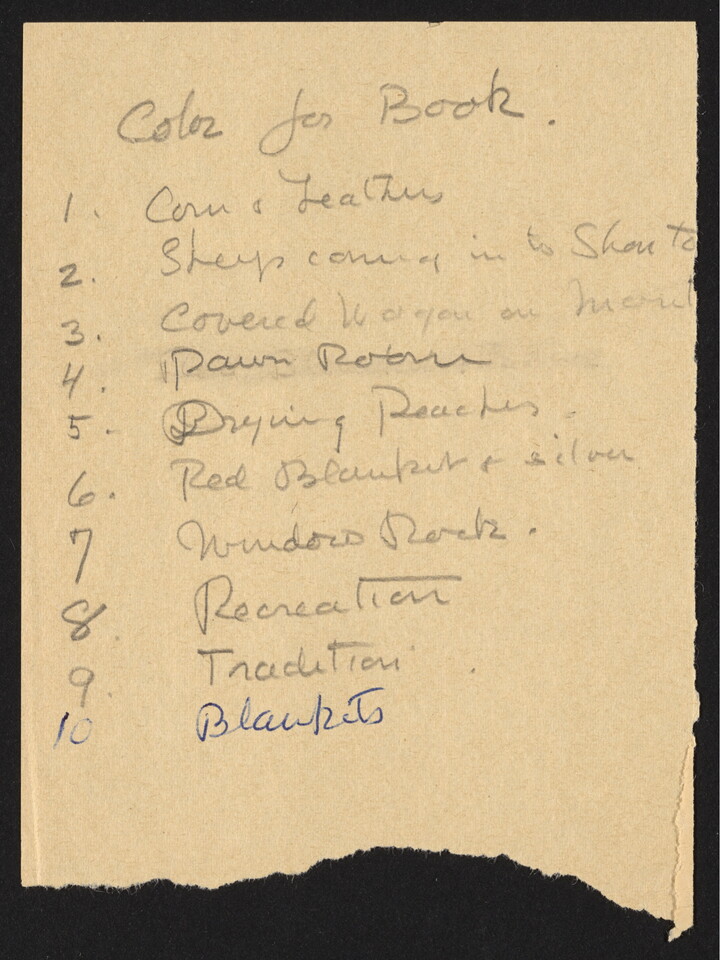 Color for Book.
1. Corn & Feathers
2. Sheep coming in to Shonto
3. Covered Wagon on
4. Dawn
5. Drying Peaches.
6. Red Blanket & silver
7 Window Rock.
8. Recreation
9. Tradition
10 Blankets